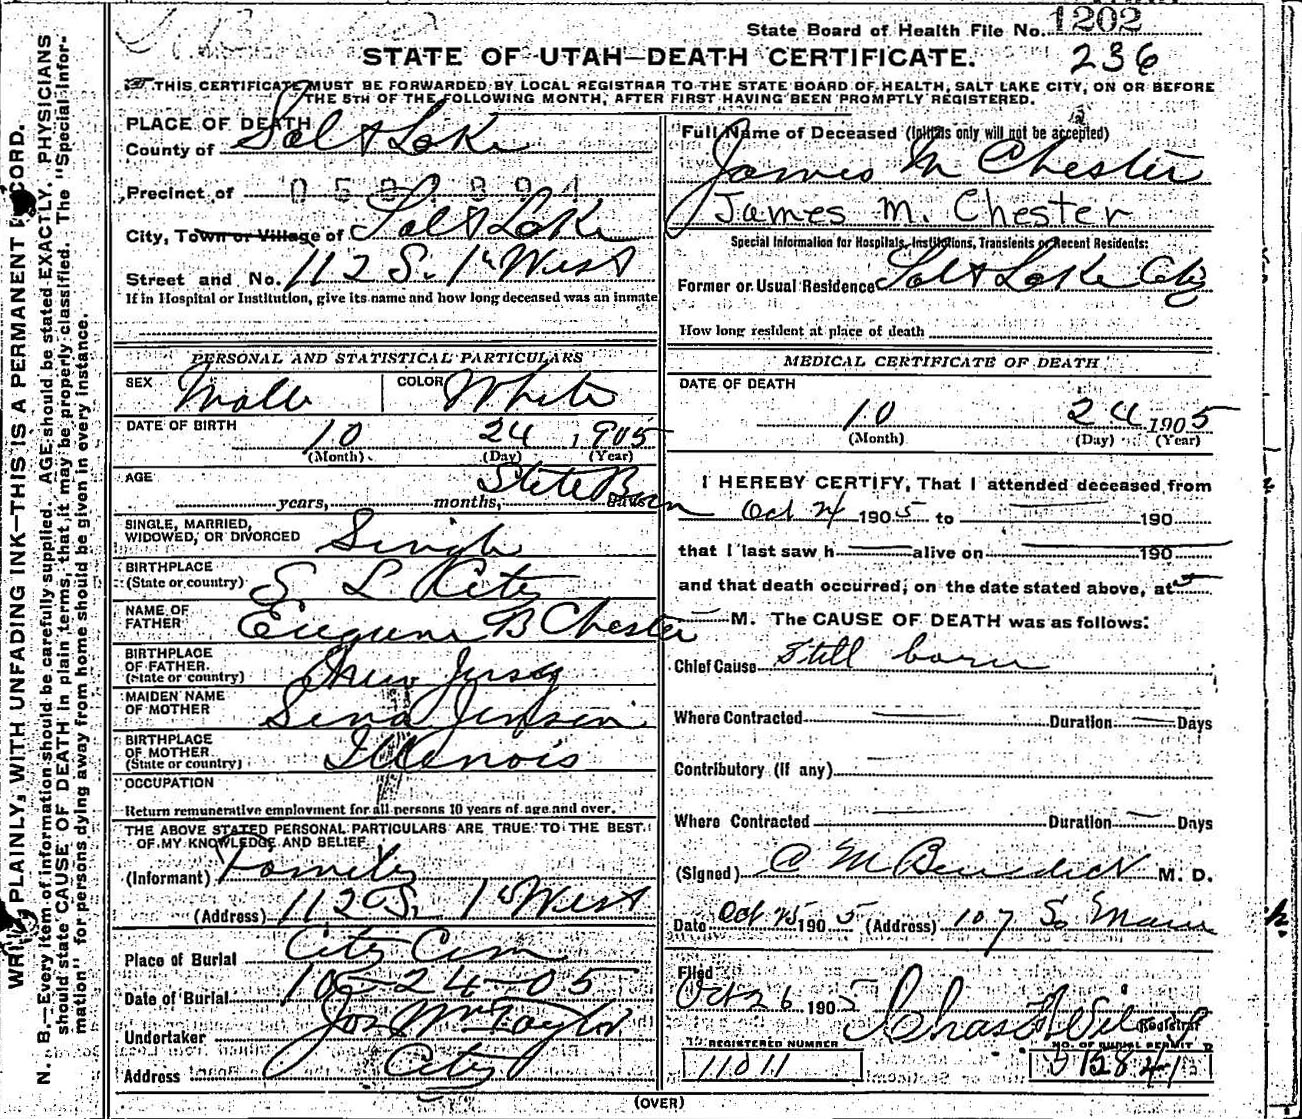 State Board of Health File No. 1202
236
STATE OF UTAH—DEATH CERTIFICATE.
THIS CERTIFICATE MUST BE FORWARDED BY LOCAL REGISTRAR TO THE STATE BOARD OF HEALTH, SALT LAKE CITY, ON OR BEFORE
THE 5TH OF THE FOLLOWING MONTH, AFTER FIRST HAVING BEEN PROMPTLY REGISTERED.
PLACE OF DEATH
County of Salt Lake
Precinct of
City, Town or Village of Salt Lake
Street and No. 112 S. 1st West
If in Hospital or Institution, give its name and how long deceased was an inmate
PERSONAL AND STATISTICAL PARTICULARS
SEX Male COLOR White
DATE OF BIRTH
10 24, 1905
(Month) (Day) (Year)
AGE
years, months, days
SINGLE, MARRIED,
WIDOWED, OR DIVORCED Single
BIRTHPLACE
(State or country) S L City
NAME OF
FATHER Eugene B Chester
BIRTHPLACE
OF FATHER
(State or country) New Jersey
MAIDEN NAME
OF MOTHER Sena Jensen
BIRTHPLACE
OF MOTHER
(State or country) Illenois
OCCUPATION
Return remunerative employment for all persons 10 years of age and over.
THE ABOVE STATED PERSONAL PARTICULARS ARE TRUE TO THE BEST
OF MY KNOWLEDGE AND BELIEF
(Informant) Family
(Address) 112 S. 1st West
Place of Burial City Cem
Date of Burial 10-24-05
Undertaker Jos Wm Taylor
Address City
Full Name of Deceased (Initials only will not be accepted)
James M Chester
James M. Chester
Special Information for Hospitals, Institutions, Transients or Recent Residents:
Former or Usual Residence Salt Lake City
How long resident at place of death
MEDICAL CERTIFICATE OF DEATH
DATE OF DEATH
10 24 1905
(Month) (Day) (Year)
I HEREBY CERTIFY, That I attended deceased from
Oct 24 1905 to 190
that I last saw h alive on 190
and that death occurred, on the date stated above, at
M. The CAUSE OF DEATH was as follows:
Chief Cause Still born
Where Contracted Duration Days
Contributory (if any)
Where Contracted Duration Days
(Signed) C M Benedict M. D.
Date Oct 25 1905 (Address) 107 So Main
Filed
Oct 26 1905 Registrar
REGISTERED NUMBER NO. OF BURIAL PERMIT
11011
(OVER)
WRITE PLAINLY, WITH UNFADING INK—THIS IS A PERMANENT RECORD.
N. B.—Every item of information should be carefully supplied. AGE should be stated EXACTLY. PHYSICIANS
should state CAUSE OF DEATH in plain terms, that it may be properly classified. The "Special Infor-
mation" for persons dying away from home should be given in every instance.